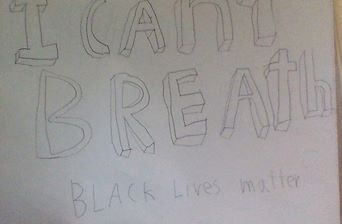 I CAnT
BREATh
BLACK Lives matter